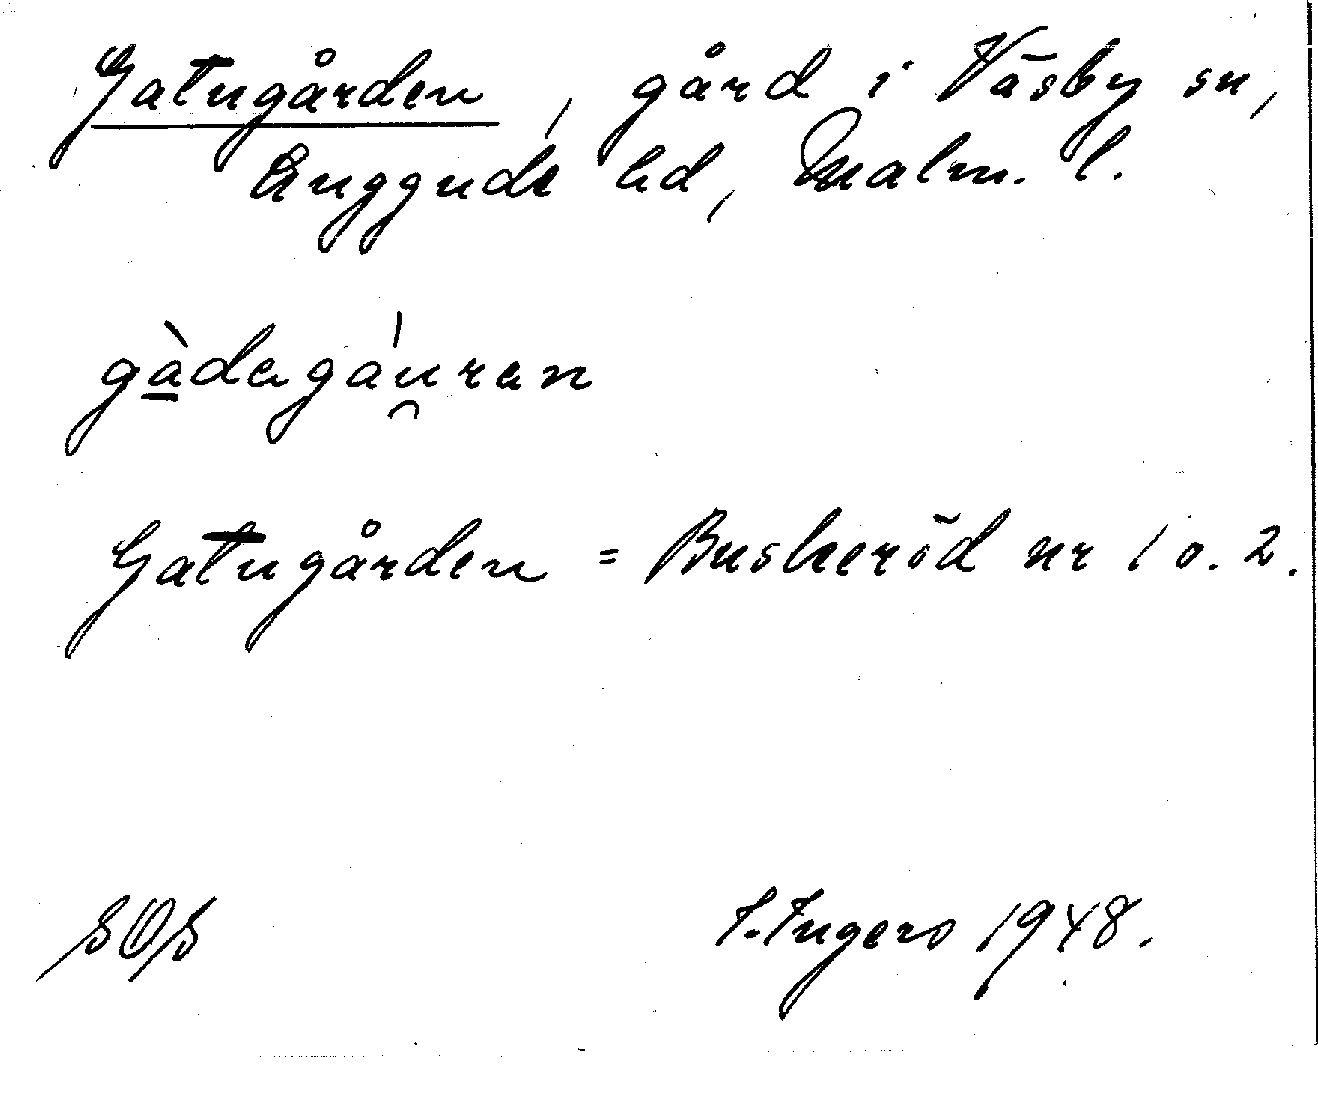 Gatugården, gård i Väsby sn,
Luggude hd, Malm. l.
gàdagáu̯ran
Gatugården = Buskeröd nr 1 o. 2.
SOS I. Ingers 1948.